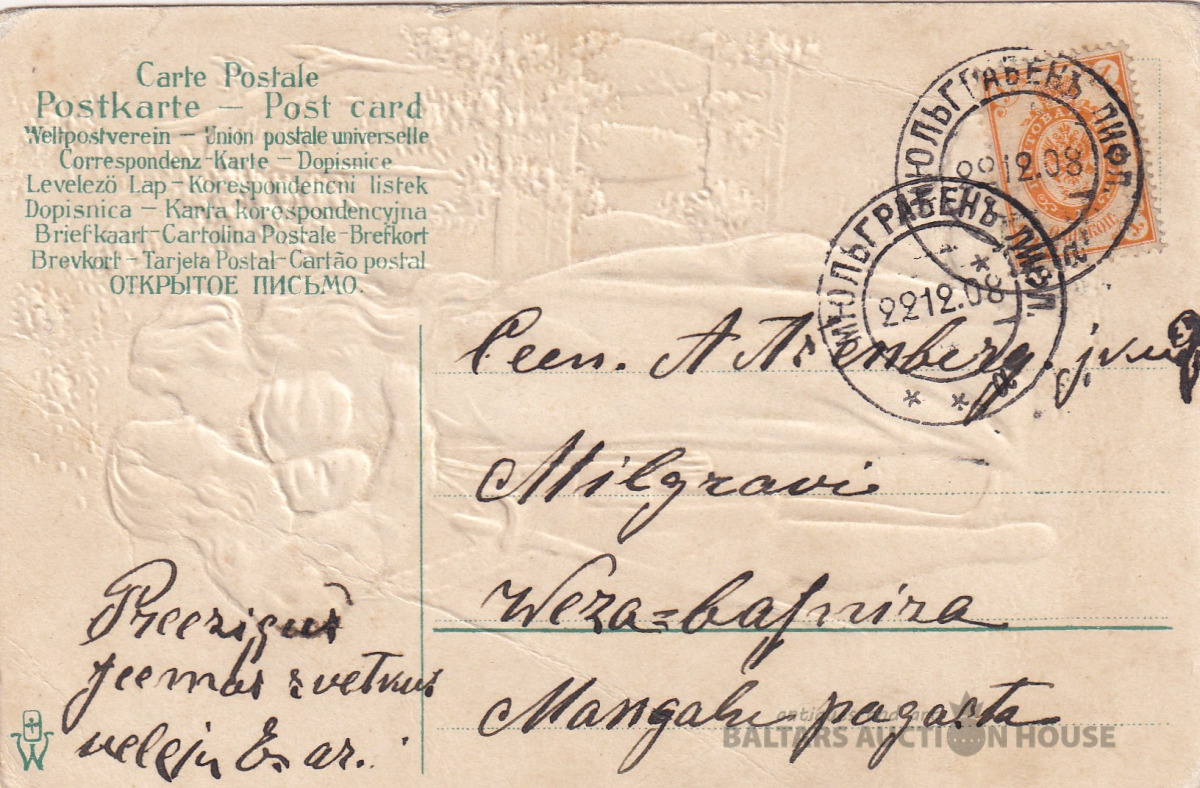 Carte Postale
Postkarte — Post card
Weltpostverein — Union postale universelle
Correspondenz-Karte — Dopisnice
Levelező Lap — Korespondencni listek
Dopisnica — Karta korespondencyjna
Briefkaart-Cartolina Postale-Brefkort
Brevkort-Tarjeta Postal-Cartão postal
ОТКРЫТОЕ ПИСЬМО.
МЮЛЬГРАБЕНЪ ЛИФЛ.
12.08
МЮЛЬГРАБЕНЪ ЛИФЛ.
22 12.08
Ceen. A
Milgravi
Weza=basniza
Mangalu pagasta
Preezigus
seemas svetkus
veleju Es ar.
W
antiques and art
BALTARS AUCTION HOUSE